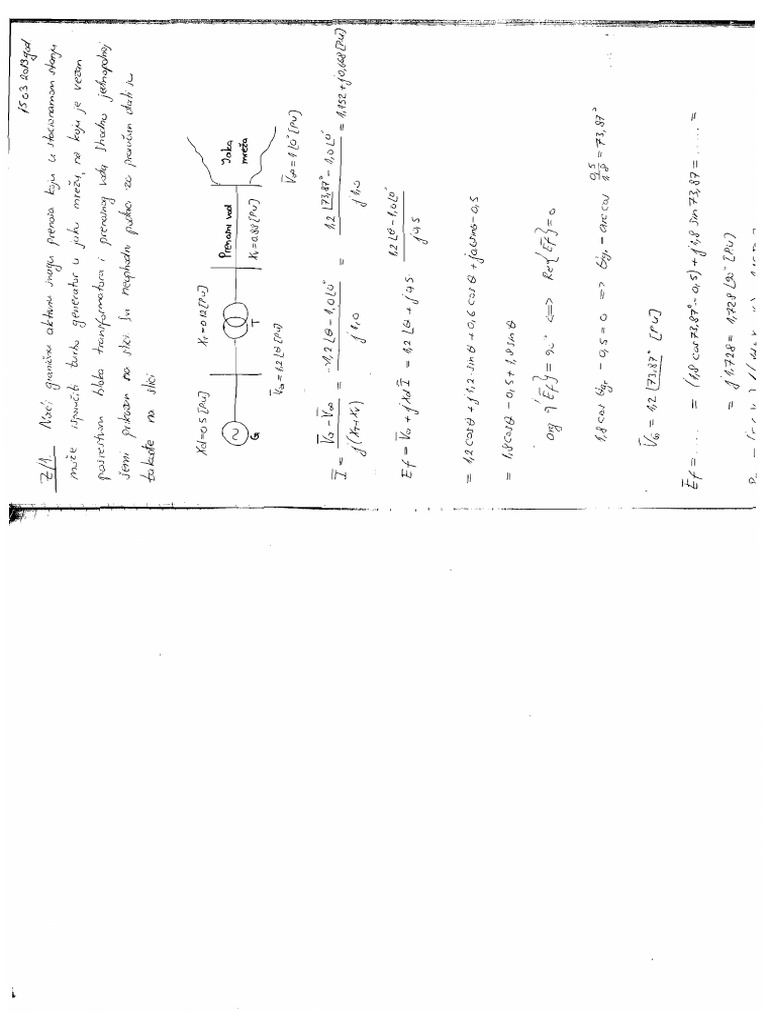 15 03 2013 god
Z/1. Naći graničnu aktivnu snagu prenosa koju u stacionarnom stanju
može isporučiti turbo generator u jaku mrežu, na koju je vezan
posredstvom bloka transformatora i prenosnog voda shodno jednopolnoj
šemi prikazan na slici. Svi neophodni podaci za proračun dati su
takođe na slici
Xd=0.5 [PU]
XT=0.12 [PU]
Prenosni vod
Jaka
mreža
G
T
XV=0.88 [PU]
VG=1.2 ∠θ [PU]
V∞=1∠0° [PU]
I = (VG − V∞) / (j(XT+XV)) = (1,2 ∠θ − 1,0∠0°) / (j1,0) = (1.2 ∠73,87° − 1,0∠0°) / (j1,0) = 1,152 + j0,668 [PU]
Ef = VG + jXd I = 1,2 ∠θ + j0,5 · (1,2∠θ − 1,0∠0°) / (j4,5)
= 1,2 cosθ + j1,2 · sinθ + 0,6 cosθ + j0,6 sinθ − 0,5
= 1,8cosθ − 0,5 + 1,8 sinθ
arg{Ef} = 90° <=> Re{Ef}=0
1,8 cos θgr − 0,5 = 0 => θgr − arccos 0,5/1.8 = 73,87°
VG = 1,2 ∠73,87° [PU]
Ef = ..... = (1,8 cos 73,87° − 0,5) + j1,8 sin 73,87 = ..... =
= j1.728 = 1,728 ∠90° [PU]